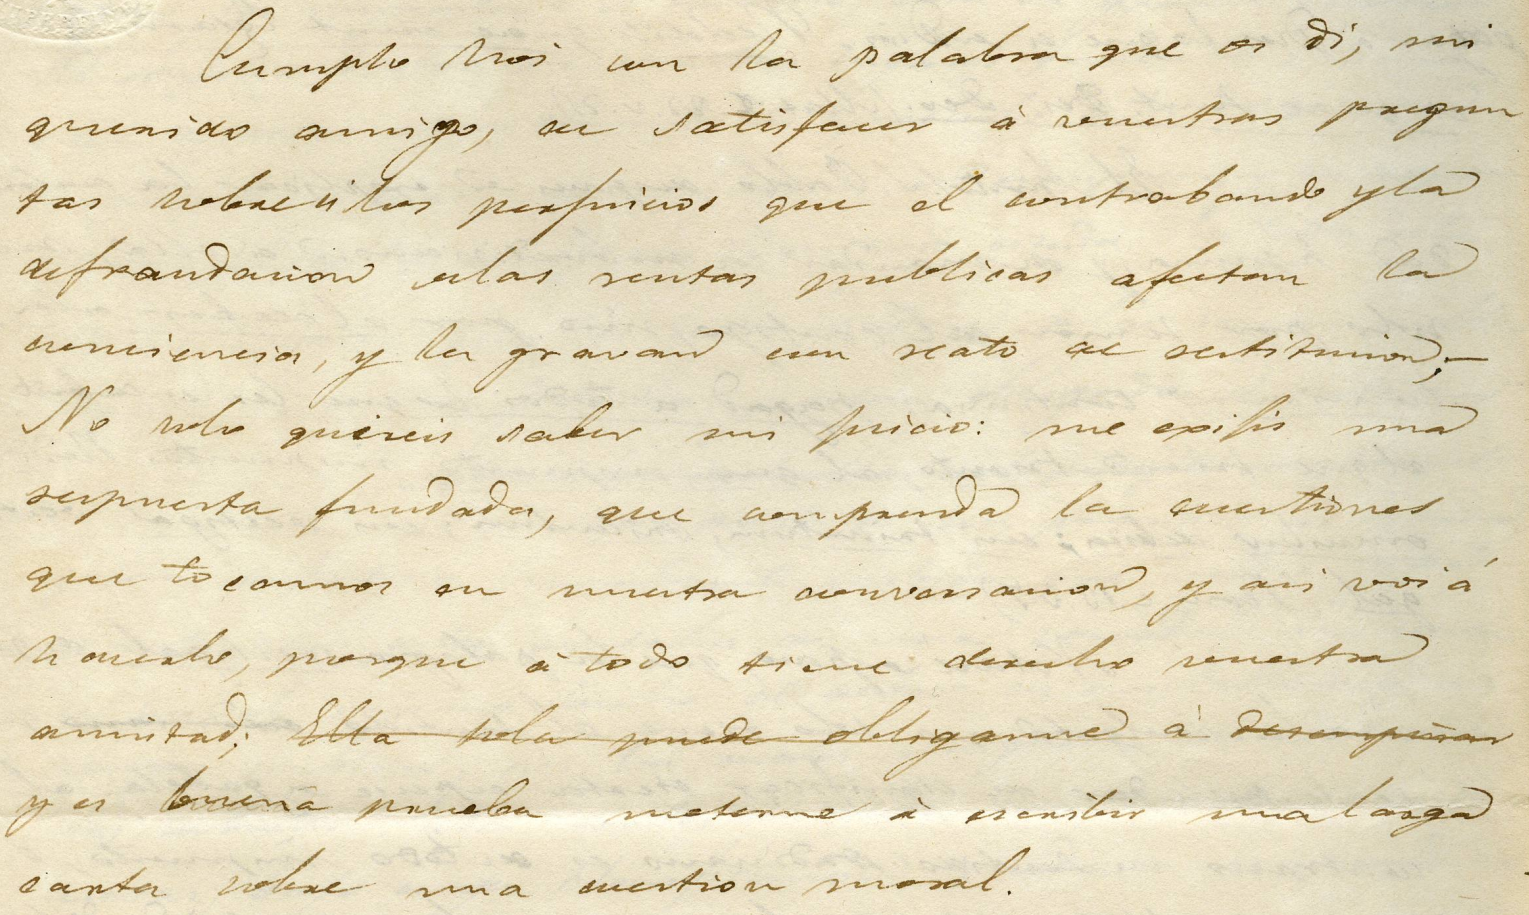 Cumplo hoi con la palabra que os di, mi
querido amigo, de satisfacer à vuestras pregun
tas sobre si los perjuicios que el contrabando y la
defraudacion de las rentas publicas afectan la
conciencia, y la gravan con reato de restitucion;—
No solo quereis saber mi juicio: me exijis una
respuesta fundada, que comprenda la cuestiones
que tocamos en nuestra conversacion, y asi voi á
hacerlo, porque à todo tiene derecho vuestra
amistad; Ella sola puede obligarme à desempeñar
y es buena prueba meterme à escribir una larga
carta sobre una cuestion moral.